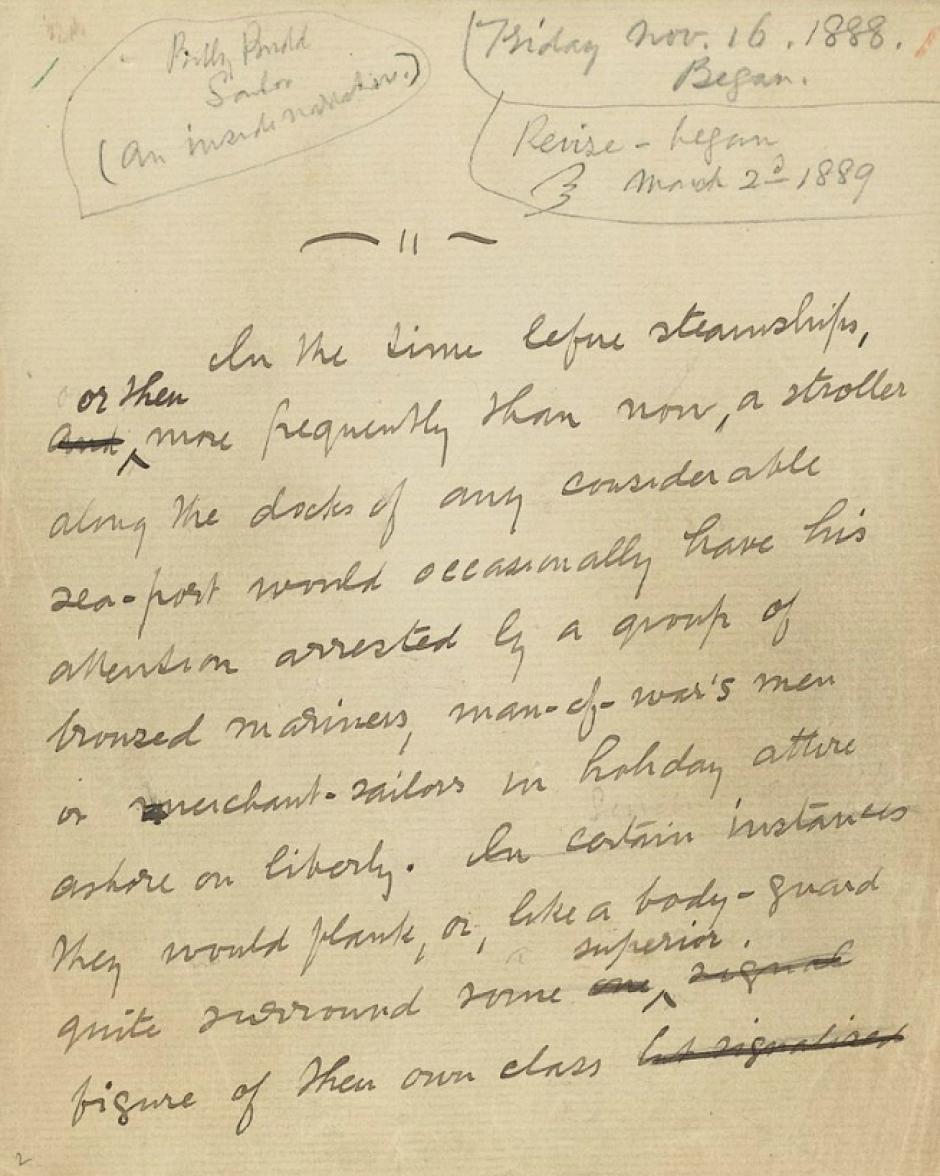 Billy Budd
Sailor
(An inside narrative.)
Friday Nov. 16. 1888.
Began.
Revise - began
March 2d 1889
In the time before steamships,
or then
and more frequently than now, a stroller
along the docks of any considerable
sea-port would occasionally have his
attention arrested by a group of
bronzed mariners, man-of-war's men
or merchant-sailors in holiday attire
ashore on liberty. In certain instances
they would flank, or, like a body-guard
superior
quite surround some one signal
figure of their own class but signalised
2